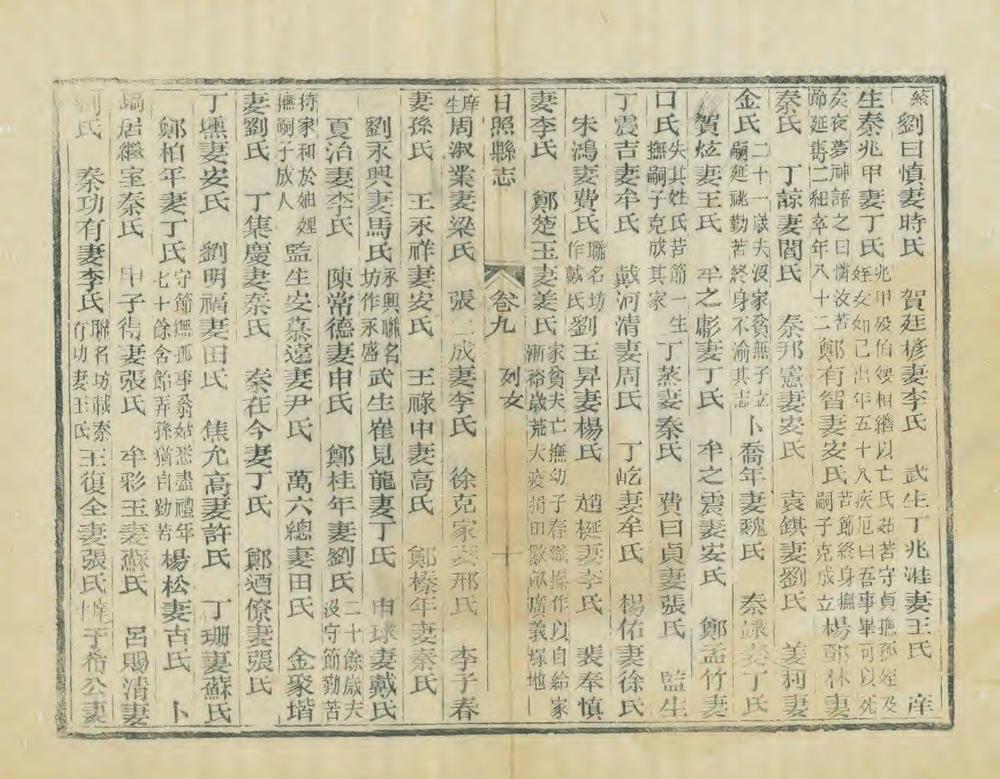 劉曰慎妻時氏 賀廷楗妻李氏 武生丁兆漄妻王氏 庠
生秦兆甲妻丁氏 兆甲歿伯綬相繼以亡氏茹苦守貞撫郎姪及
姪女如己出年五十八疾厄曰吾事畢可以死
矣夜夢神語之曰憐汝苦
節延壽二紀卒年八十二 鄭有智妻安氏 苦節終身撫
嗣子克成立 楊鄧林妻
秦氏 丁諒妻閻氏 秦邦憲妻安氏 袁錤妻劉氏 姜利妻
金氏 二十一歲夫沒家貧無子立
嗣延祧勤苦終身不渝其志 卜喬年妻魏氏 秦錄妻丁氏
賀炫妻王氏 牟之彪妻丁氏 牟之震妻安氏 鄭孟竹妻
口氏 失其姓氏苦節一生
撫嗣子克成其家 丁蒸妻秦氏 費曰貞妻張氏 監生
丁震吉妻牟氏 戴河清妻周氏 丁屹妻牟氏 楊佑妻徐氏
朱鴻妻費氏 聯名坊
作戴氏 劉玉昇妻楊氏 趙梴妻李氏 裴奉慎
妻李氏 鄭楚玉妻姜氏 家貧夫亡撫幼子春織操作以自給家
漸裕歲荒大疫捐田數畝廣義塚地
日照縣志 卷九 列女 十
庠
生 周淑業妻梁氏 張二成妻李氏 徐克家妻邢氏 李子春
妻孫氏 王永祥妻安氏 王祿申妻高氏 鄭榛年妻秦氏
劉永興妻馬氏 永興聯名
坊作永盛 武生崔見龍妻丁氏 申球妻戴氏
夏治妻李氏 陳常德妻申氏 鄭桂年妻劉氏 二十餘歲夫
沒守節勤苦
待家和於妯娌
撫嗣子放人 監生安慕遠妻尹氏 萬六總妻田氏 金聚堦
妻劉氏 丁集慶妻秦氏 秦在今妻丁氏 鄭迺僚妻張氏
丁壎妻安氏 劉明福妻田氏 焦允高妻許氏 丁珊妻蘇氏
鄭柏年妻丁氏 守節撫孤事翁姑恐盡禮年
七十餘含飴弄孫猶自勤苦 楊松妻古氏 卜
塙居繼室秦氏 申子衛妻張氏 牟彩玉妻蘇氏 呂賜清妻
劉氏 秦功有妻李氏 聯名坊載秦
有功妻王氏 王復全妻張氏 庠
生 于希公妻